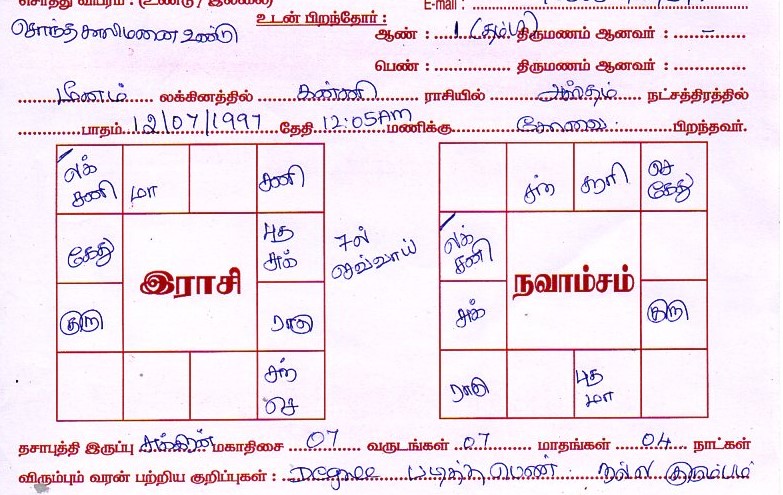 சொத்து விபரம் : (உண்டு / இல்லை) E-mail :
சொந்த காலிமனை உண்டு உடன் பிறந்தோர் : ஆண் : 1 (தம்பி) திருமணம் ஆனவர் : -
பெண் : திருமணம் ஆனவர் :
மீனம் லக்கினத்தில் கன்னி ராசியில் அஸ்தம் நட்சத்திரத்தில்
பாதம் 12/07/1997 தேதி 12:05AM மணிக்கு கோவை பிறந்தவர்.
லக் சனி மா சனி
கேது புத சுக்
குரு ராகு
சந் செ
இராசி
7ல் செவ்வாய்
சந் சூரி செ கேது
லக் சனி
சுக் குரு
ராகு புத மா
நவாம்சம்
தசாபுத்தி இருப்பு சந்திரன் மகாதிசை 07 வருடங்கள் 07 மாதங்கள் 04 நாட்கள்
விரும்பும் வரன் பற்றிய குறிப்புகள் : Degree படித்த பெண். நல்ல குடும்பம்